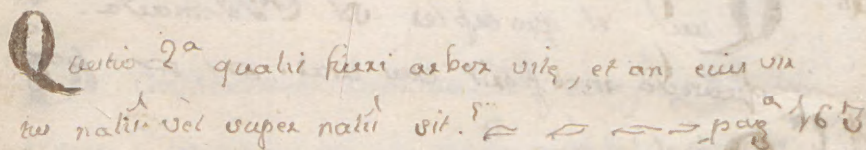 Questio 2ª qualis fueri arbor vitę, et an eius vir
tus nàlis vèl super nalis sit. pagª 163